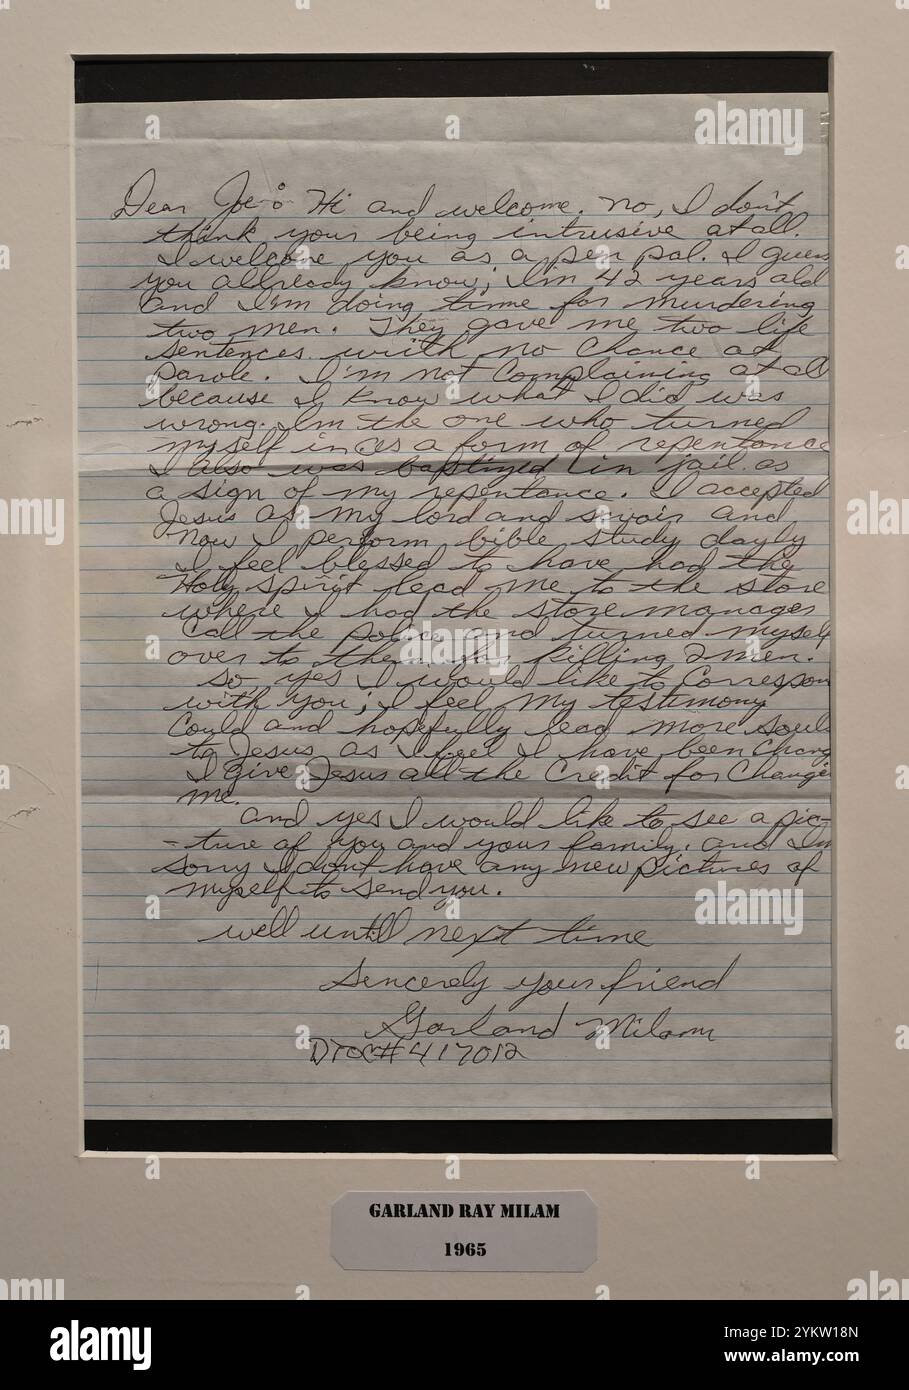 Dear Joe: Hi and welcome. No, I don't
think your being intrusive at all.
I welcome you as a pen pal. I guess
you allready know; I'm 42 years old
and I'm doing time for murdering
two men. They gave me two life
sentences with no chance at
parole. I'm not complaining at all
because I know what I did was
wrong. I'm the one who turned
myself in as a form of repentance
I also was baptized in jail as
a sign of my repentance. I accepted
Jesus as my lord and savoir and
now I perform bible study dayly
I feel blessed to have had thy
Holy spirit lead me to the store
where I had the store manager
call the police and turned myself
over to them for killing 2 men.
so yes I would like to correspon
with you; I feel my testimony
could and hopefully lead more souls
to Jesus as I feel I have been chang
I give Jesus all the credit for changing
me.
and yes I would like to see a pic-
-ture of you and your family. and I'm
sorry I don't have any new pictures of
myself to send you.
well until next time
Sencerely your friend
Garland Milam
DOC# 417012
GARLAND RAY MILAM
1965
alamy
Image ID: 2YKW18N
www.alamy.com